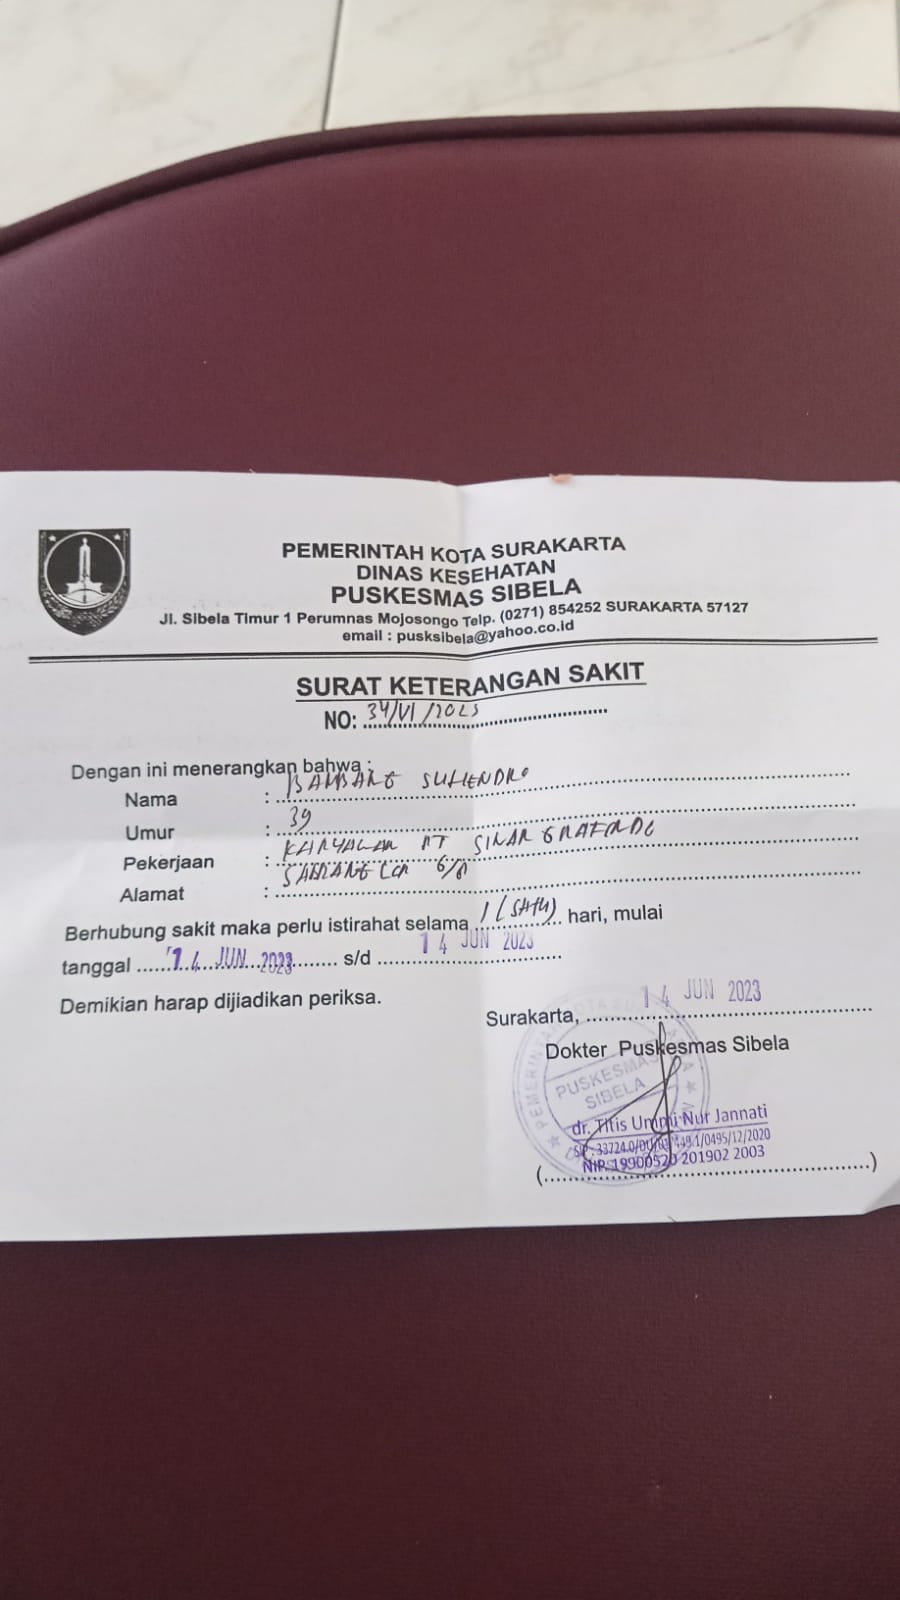 PEMERINTAH KOTA SURAKARTA
DINAS KESEHATAN
PUSKESMAS SIBELA
Jl. Sibela Timur 1 Perumnas Mojosongo Telp. (0271) 854252 SURAKARTA 57127
email : pusksibela@yahoo.co.id
SURAT KETERANGAN SAKIT
NO: 34/VI/2023
Dengan ini menerangkan bahwa :
Nama : BAMBANG SUHENDRO
Umur : 39
Pekerjaan : KARYAWAN PT SINAR GRAFINDO
Alamat :
Berhubung sakit maka perlu istirahat selama 1 (SATU) hari, mulai
tanggal 14 JUN 2023 s/d 14 JUN 2023
Demikian harap dijiadikan periksa.
Surakarta, 14 JUN 2023
Dokter Puskesmas Sibela
PUSKESMAS
SIBELA
dr. Titis Ummi Nur Jannati
NIP. 19900520 201902 2003